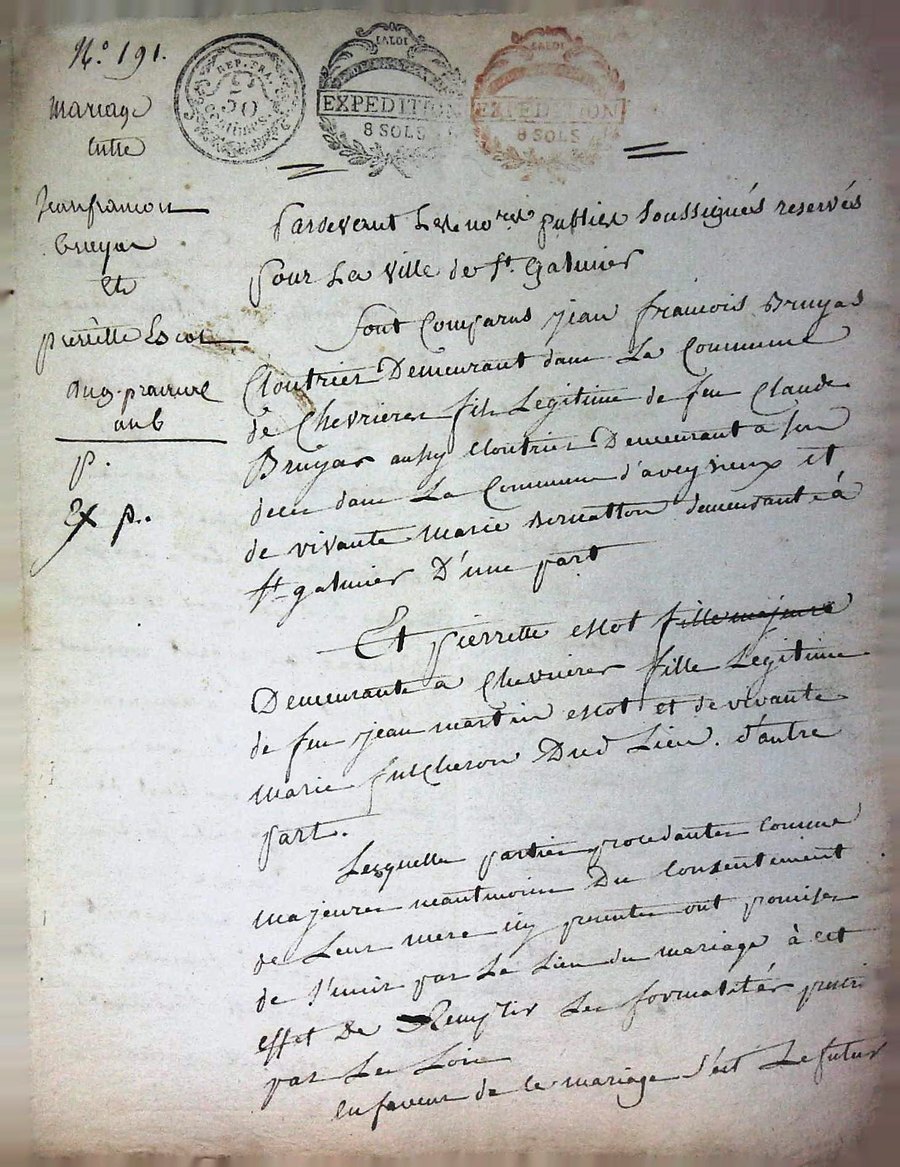 N.° 191.
Mariage
Entre
Jeanfrancois
Bruyas
Et
pierrette Escot
p.
Ex p..
REP. FRA.
50
Centimes
LA LOI
EXPEDITION
8 SOLS
LA LOI
EXPEDITION
8 SOLS
Pardevant Les no.res publics soussignés reservés
pour La ville de St. Galmier
Sont Comparus jean francois Bruyas
Cloutrier Demeurant dans La Commune
de Chevrieres fils Legitime de feu Claude
Bruyas aussy Cloutrier Demeurant a son
deces dans La Commune d'aveyzieux et
de vivante marie demeurante à
St. galmier D'une part
Et pierrette escot fille majeure
Demeurante a Chevrieres fille Legitime
de feu jean martin escot et de vivante
marie fulcheron Dud Lieu. d'autre
part.
Lesquelles parties procedantes comme
majeures neantmoins Du Consentement
de Leur mere icy presentes ont promises
de s'unir par Le Lien du mariage à cet
effet de Remplir Les formalités prescri
par Les Loix
En faveur de ce mariage s'est Le futur